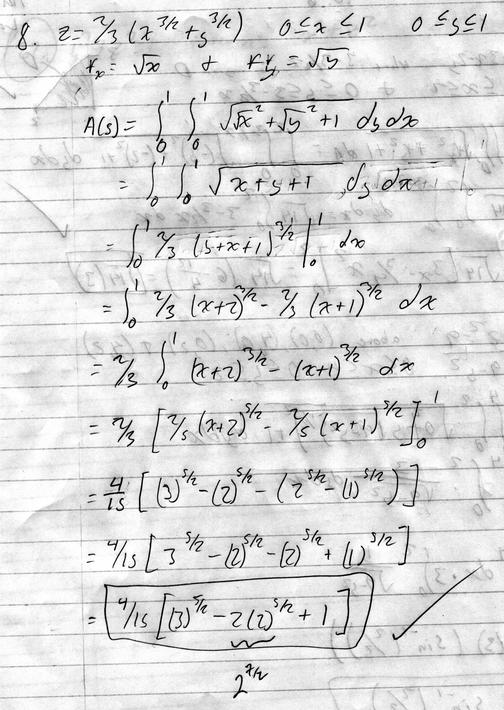 8. z = 2/3 (x^3/2 + y^3/2) 0 ≤ x ≤ 1 0 ≤ y ≤ 1
r_x = √x + r_y = √y
A(s) = ∫_0^1 ∫_0^1 √(√x^2 + √y^2 + 1) dy dx
= ∫_0^1 ∫_0^1 √(x + y + 1) dy dx
= ∫_0^1 2/3 (y + x + 1)^3/2 |_0^1 dx
= ∫_0^1 2/3 (x+2)^3/2 - 2/3 (x+1)^3/2 dx
= 2/3 ∫_0^1 (x+2)^3/2 - (x+1)^3/2 dx
= 2/3 [2/5 (x+2)^5/2 - 2/5 (x+1)^5/2]_0^1
= 4/15 [(3)^5/2 - (2)^5/2 - (2^5/2 - (1)^5/2)]
= 4/15 [3^5/2 - (2)^5/2 - (2)^5/2 + (1)^5/2]
= 4/15 [(3)^5/2 - 2(2)^5/2 + 1]
2^7/2